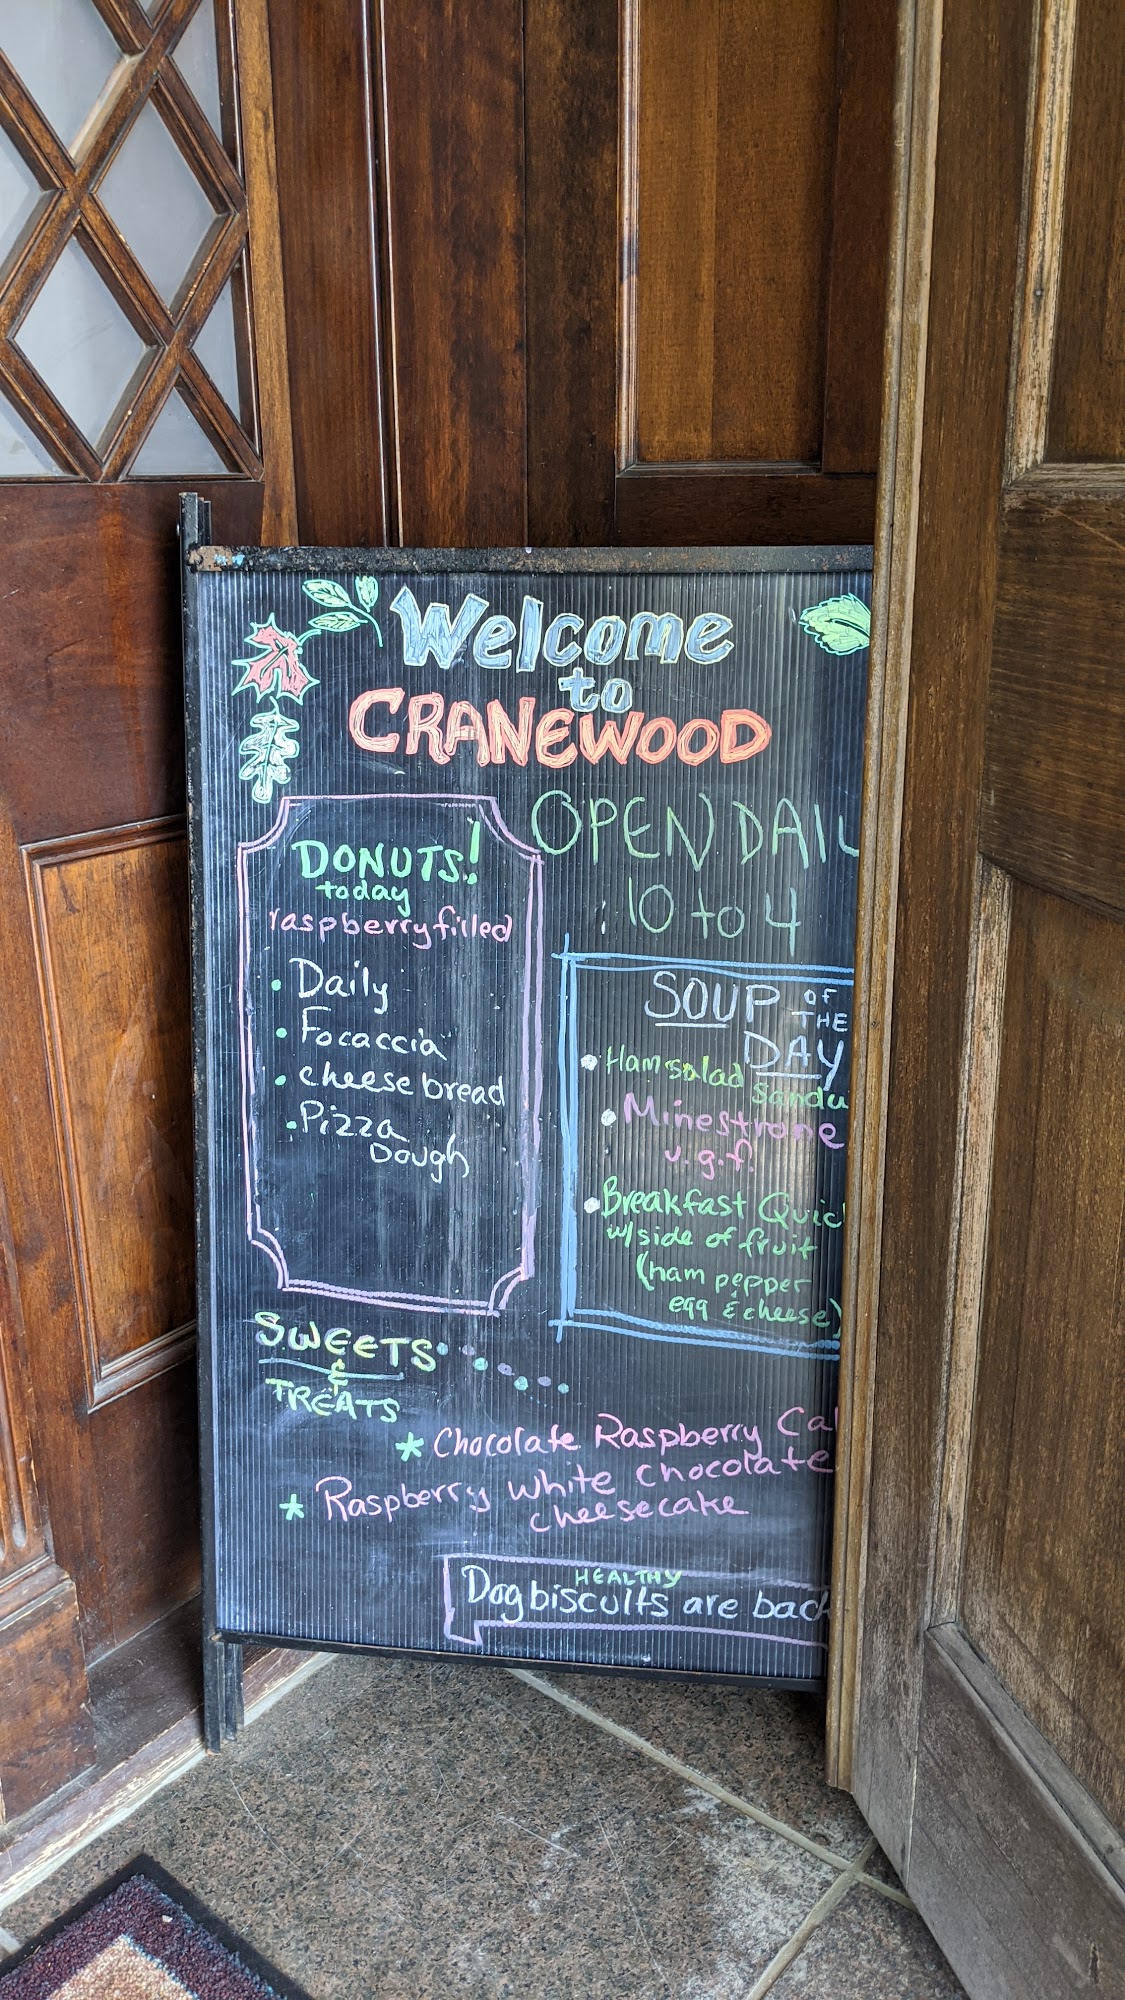 Welcome
to
CRANEWOOD
OPEN DAIL
10 to 4
DONUTS!
today
raspberry filled
• Daily
• Focaccia
• cheese bread
• Pizza
Dough
SOUP OF
THE
DAY
• Ham salad
Sandu
• Minestrone
v.g.f.
• Breakfast Quic
w/side of fruit
(ham pepper
egg & cheese)
SWEETS
&
TREATS
* Chocolate Raspberry Ca
* Raspberry white chocolate
cheesecake
HEALTHY
Dog biscuits are back